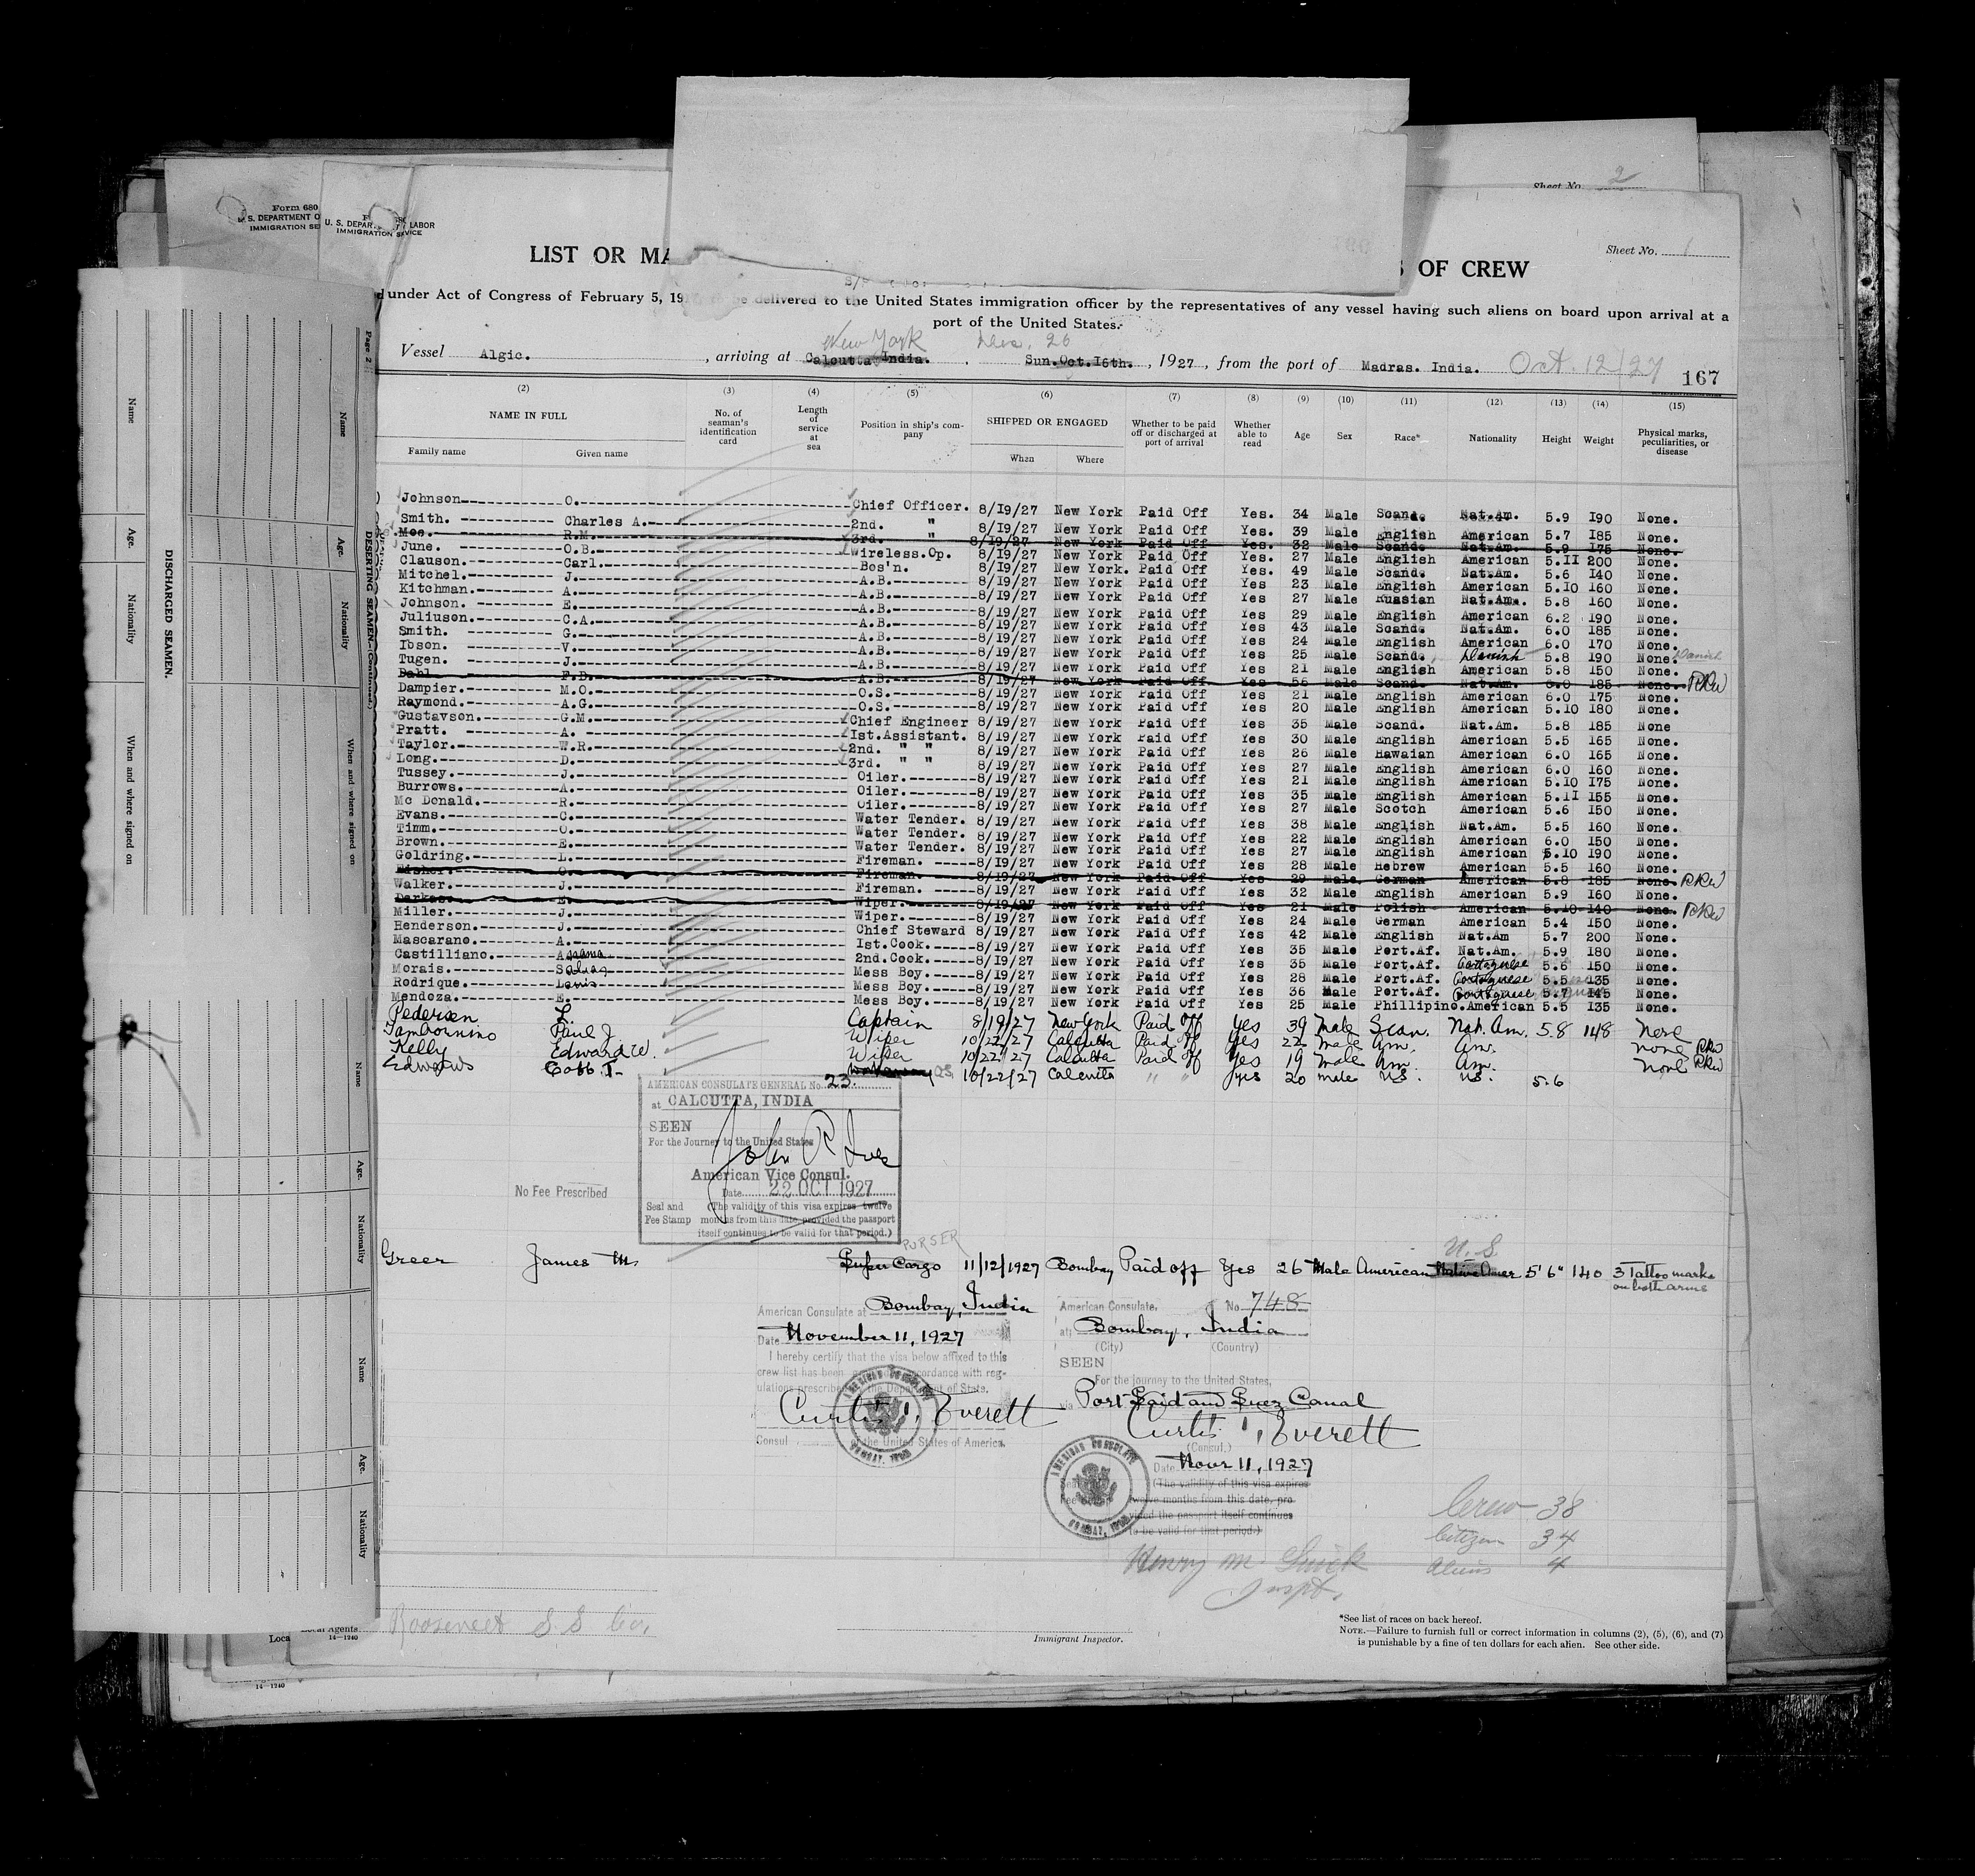 Sheet No. 2
Form 680
U. S. DEPARTMENT O
IMMIGRATION SE
U. S. DEPAR T LABOR
IMMIGRATION S VICE
Sheet No. 1
LIST OR MA S OF CREW
d under Act of Congress of February 5, 19 be delivered to the United States immigration officer by the representatives of any vessel having such aliens on board upon arrival at a
port of the United States.
New York Dec. 26
Vessel Algic. , arriving at Calcutta India. , Sun.Oct.16th. , 1927 , from the port of Madras. India. Oct. 12/27
167
(2) (3) (4) (5) (6) (7) (8) (9) (10) (11) (12) (13) (14) (15)
NAME IN FULL No. of seaman's identification card Length of service at sea Position in ship's company SHIPPED OR ENGAGED Whether to be paid off or discharged at port of arrival Whether able to read Age Sex Race* Nationality Height Weight Physical marks, peculiarities, or disease
Family name Given name When Where
Johnson O. Chief Officer. 8/19/27 New York Paid Off Yes. 34 Male Scand. Nat.Am. 5.9 190 None.
Smith. Charles A. 2nd. " 8/19/27 New York Paid Off Yes. 39 Male English American 5.7 185 None.
Moe. R.M. 3rd. " 8/19/27 New York Paid Off Yes. 32 Male Scand. Nat.Am. 5.9 175 None.
June. O.B. Wireless.Op. 8/19/27 New York Paid Off Yes. 27 Male English American 5.11 200 None.
Clauson. Carl. Bos'n. 8/19/27 New York. Paid Off Yes. 49 Male Scand. Nat.Am. 5.6 140 None.
Mitchel. J. A.B. 8/19/27 New York Paid Off Yes 23 Male English American 5.10 160 None.
Kitchman. A. A.B. 8/19/27 New York Paid Off Yes 27 Male Russian Nat.Am. 5.8 160 None.
Johnson. E. A.B. 8/19/27 New York Paid Off Yes 29 Male English American 6.2 190 None.
Juliuson. C.A. A.B. 8/19/27 New York Paid Off Yes 43 Male Scand. Nat.Am. 6.0 185 None.
Smith. G. A.B. 8/19/27 New York Paid Off Yes 24 Male English American 6.0 170 None.
Ibson. V. A.B. 8/19/27 New York Paid Off Yes 25 Male Scand. Danish 5.8 190 None. Danish
Tugen. J. A.B. 8/19/27 New York Paid Off Yes 21 Male English American 5.8 150 None.
Dahl. F.D. A.B. 8/19/27 New York Paid Off Yes 56 Male Scand Nat.Am. 6.0 185 None. RRW
Dampier. M.O. O.S. 8/19/27 New York Paid Off Yes 21 Male English American 6.0 175 None.
Raymond. A.G. O.S. 8/19/27 New York Paid Off Yes 20 Male English American 5.10 180 None.
Gustavson. G.M. Chief Engineer 8/19/27 New York Paid Off Yes 35 Male Scand. Nat.Am. 5.8 185 None
Pratt. A. Ist.Assistant. 8/19/27 New York Paid Off Yes 30 Male English American 5.5 165 None.
Taylor. W.R. 2nd. " " 8/19/27 New York Paid Off Yes 26 Male Hawaian American 6.0 165 None.
Long. D. 3rd. " " 8/19/27 New York Paid Off Yes 27 Male English American 6.0 160 None.
Tussey. J. Oiler. 8/19/27 New York Paid Off Yes 21 Male English American 5.10 175 None.
Burrows. A. Oiler. 8/19/27 New York Paid Off Yes 35 Male English American 5.11 155 None.
Mc Donald. R. Oiler. 8/19/27 New York Paid Off Yes 27 Male Scotch American 5.6 150 None.
Evans. C. Water Tender. 8/19/27 New York Paid Off Yes 38 Male English Nat.Am. 5.5 160 None.
Timm. O. Water Tender. 8/19/27 New York Paid Off Yes 22 Male English American 6.0 150 None.
Brown. E. Water Tender. 8/19/27 New York Paid Off Yes 27 Male English American 5.10 190 None.
Goldring. L. Fireman. 8/19/27 New York Paid Off Yes 28 Male Hebrew American 5.5 160 None.
Fisher. O. Fireman. 8/19/27 New York Paid Off Yes 29 Male German American 5.8 185 None RRW
Walker. J. Fireman. 8/19/27 New York Paid Off Yes 32 Male English American 5.9 160 None.
E. Wiper. 8/19/27 New York Paid Off Yes 21 Male Polish American 5.10 140 None. RRW
Miller. J. Wiper. 8/19/27 New York Paid Off Yes 24 Male German American 5.4 150 None.
Henderson. J. Chief Steward 8/19/27 New York Paid Off Yes 42 Male English Nat.Am 5.7 200 None.
Mascarano. A. Ist.Cook. 8/19/27 New York Paid Off Yes 35 Male Port.Af. Nat.Am. 5.9 180 None.
Castilliano. 2nd.Cook. 8/19/27 New York Paid Off Yes 35 Male Port.Af. Portoguese 5.6 150 None.
Morais. Mess Boy. 8/19/27 New York Paid Off Yes 28 Male Port.Af. Portoguese 5.5 135 None.
Rodrique. Louis Mess Boy. 8/19/27 New York Paid Off Yes 36 Male Port.Af. Portoguese 5.7 145 None.
Mendoza. E. Mess Boy. 8/19/27 New York Paid Off Yes 25 Male Phillipino. American 5.5 135 None.
Pedersen L. Captain 8/19/27 New York Paid Off Yes 39 Male Scan. Nat. Am. 5.8 148 None
Tambornino Paul J. Wiper 10/22/27 Calcutta Paid off Yes 22 male Am. Am. none RRW
Kelly Edward W. Wiper 10/22/27 Calcutta Paid off Yes 19 Male Am. Am. None RRW
Edwards Cobb T. O.S. 10/22/27 Calcutta " " yes 20 male U.S. U.S. 5.6
AMERICAN CONSULATE GENERAL No. 23.
at CALCUTTA, INDIA
SEEN
For the Journey to the United States
American Vice Consul.
Date 22 OCT 1927
Seal and (The validity of this visa expires twelve
Fee Stamp months from this date, provided the passport
itself continues to be valid for that period.)
No Fee Prescribed
PURSER U.S.
Greer James M. Super Cargo 11/12/1927 Bombay Paid off Yes 26 Male American Native Amer 5'6" 140 3 Tattoo marks
on both arms
American Consulate at Bombay, India
Date November 11, 1927
I hereby certify that the visa below affixed to this
crew list has been cordance with reg-
ulations prescribe the Department of State.
Curtis T. Everett
Consul of the United States of America.
AMERICAN CONSULATE
BOMBAY, INDIA
American Consulate, No. 748
at Bombay, India
(City) (Country)
SEEN
For the journey to the United States,
via Port Said and Suez Canal
Curtis T. Everett
(Consul.)
Date Novr 11, 1927
(The validity of this visa expires
twelve months from this date, pro
vided the passport itself continues
to be valid for that period.)
AMERICAN CONSULATE
BOMBAY, INDIA
Crew 38
Citizen 34
Aliens 4
Henry M.
Inspt.
Roosevelt S.S. Co.
Local Agents
14—1240
Loca
14—1240
Immigrant Inspector.
*See list of races on back hereof.
NOTE.—Failure to furnish full or correct information in columns (2), (5), (6), and (7)
is punishable by a fine of ten dollars for each alien. See other side.
Page 2
DISCHARGED SEAMEN.
Name Age. Nationality When and where signed on
DESERTING SEAMEN—(Continued.)
Name Age. Nationality When and where signed on
Name Age. Nationality Name Age. Nationality